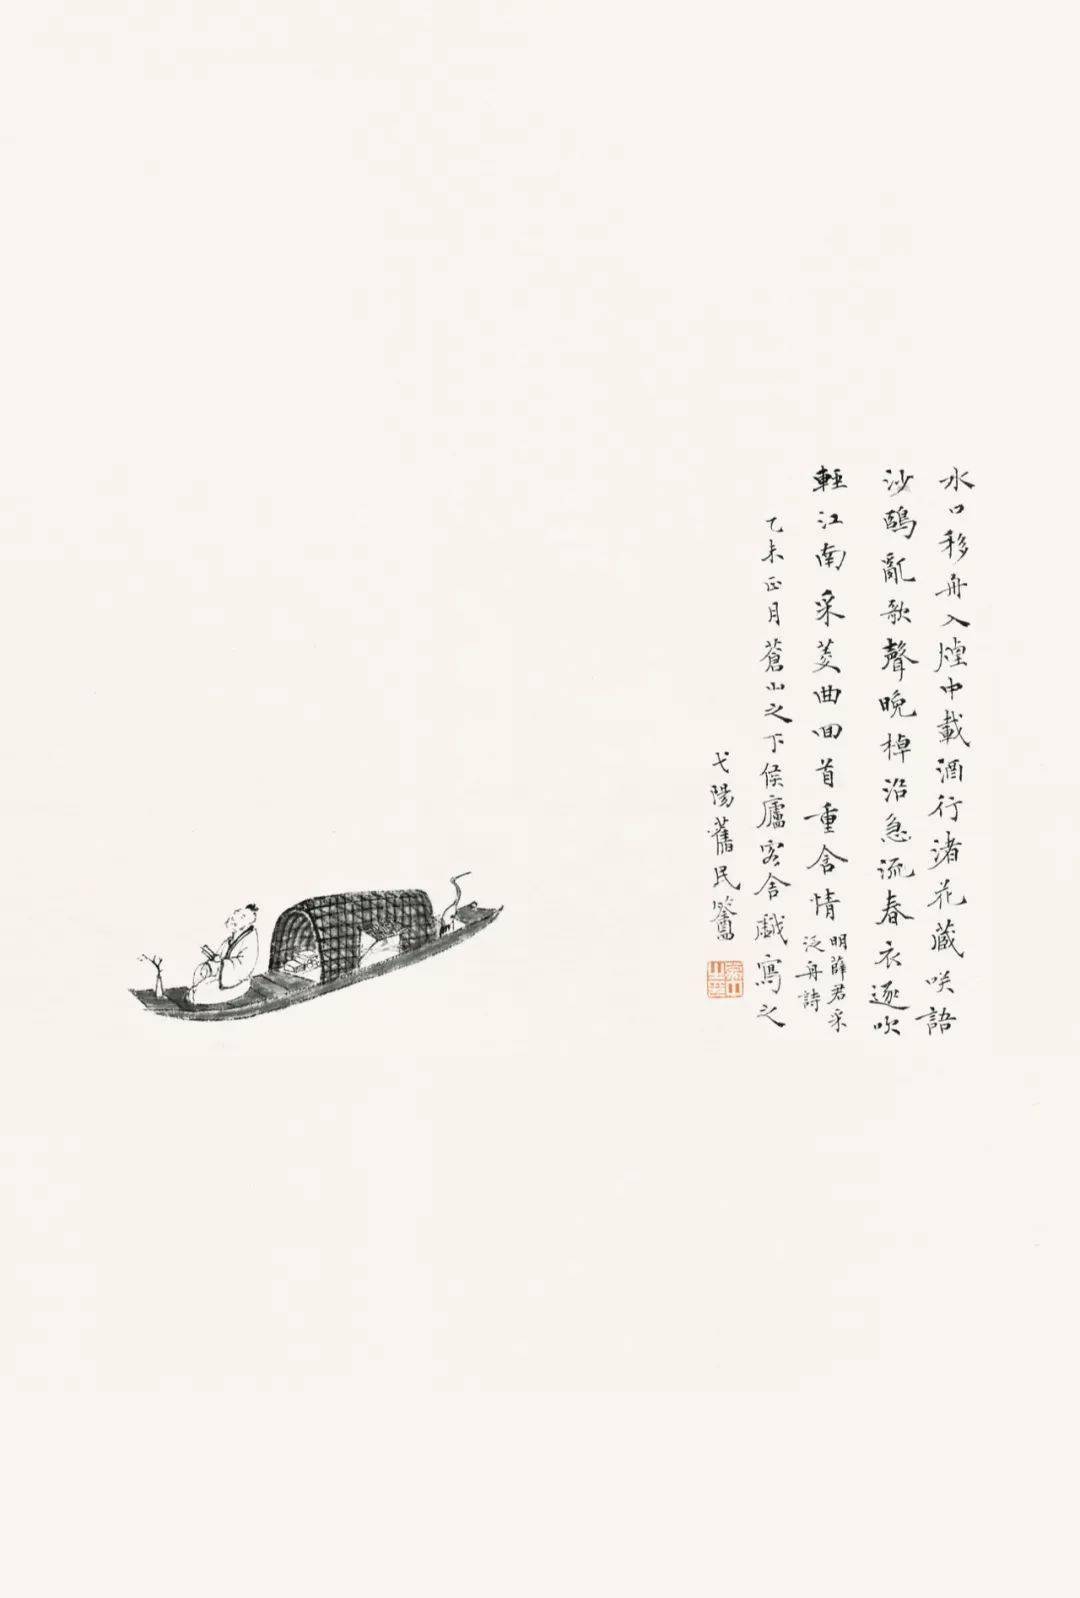 水口移舟入煙中載酒行渚花藏咲語
沙鷗亂歌聲晚棹沿急流春衣逐吹
輕江南采菱曲回首重含情明薛君采
泛舟詩
乙未正月蒼山之下侯廬客舍戲寫之
弋陽舊民鶯